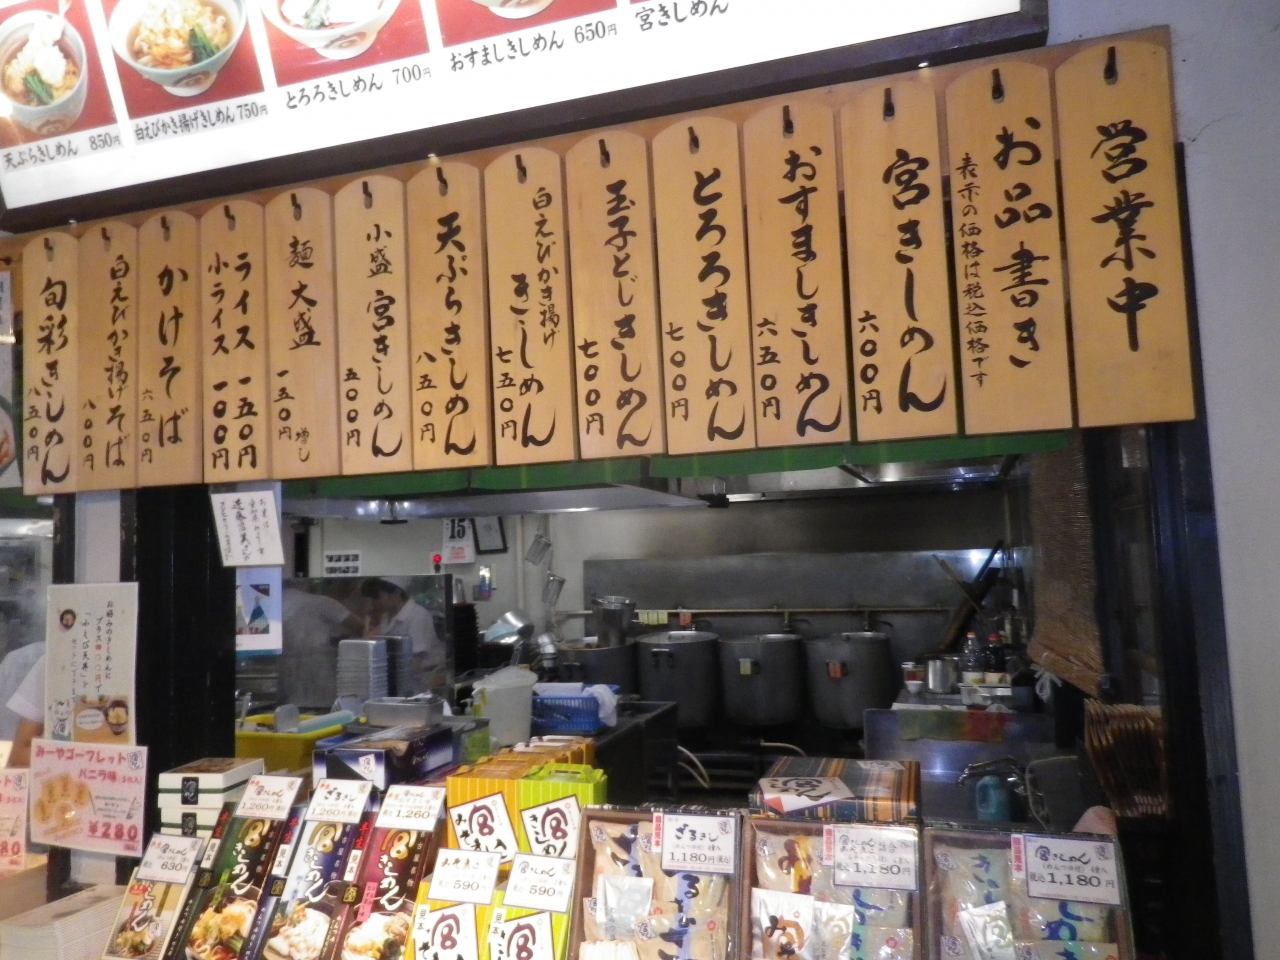 天ぷらきしめん 850円
白えびかき揚げきしめん 750円
とろろきしめん 700円
おすましきしめん 650円
宮きしめん
営業中
お品書き
表示の価格は税込価格です
宮きしめん
六〇〇円
おすましきしめん
六五〇円
とろろきしめん
七〇〇円
玉子とじきしめん
七〇〇円
白えびかき揚げ
きしめん
七五〇円
天ぷらきしめん
八五〇円
小盛 宮きしめん
五〇〇円
麺大盛
一五〇円増し
ライス 一五〇円
小ライス 一〇〇円
かけそば
六五〇円
白えびかき揚げそば
八〇〇円
旬彩きしめん
八五〇円
15
お好みのきしめんに
みーやゴーフレット
バニラ味
¥280
630円
1,260円
1,260円
1,260円
きしめん
きしめん
きしめん
590円
590円
ざるきし
1,180円
1,180円
宮きしめん
税込 1,180円